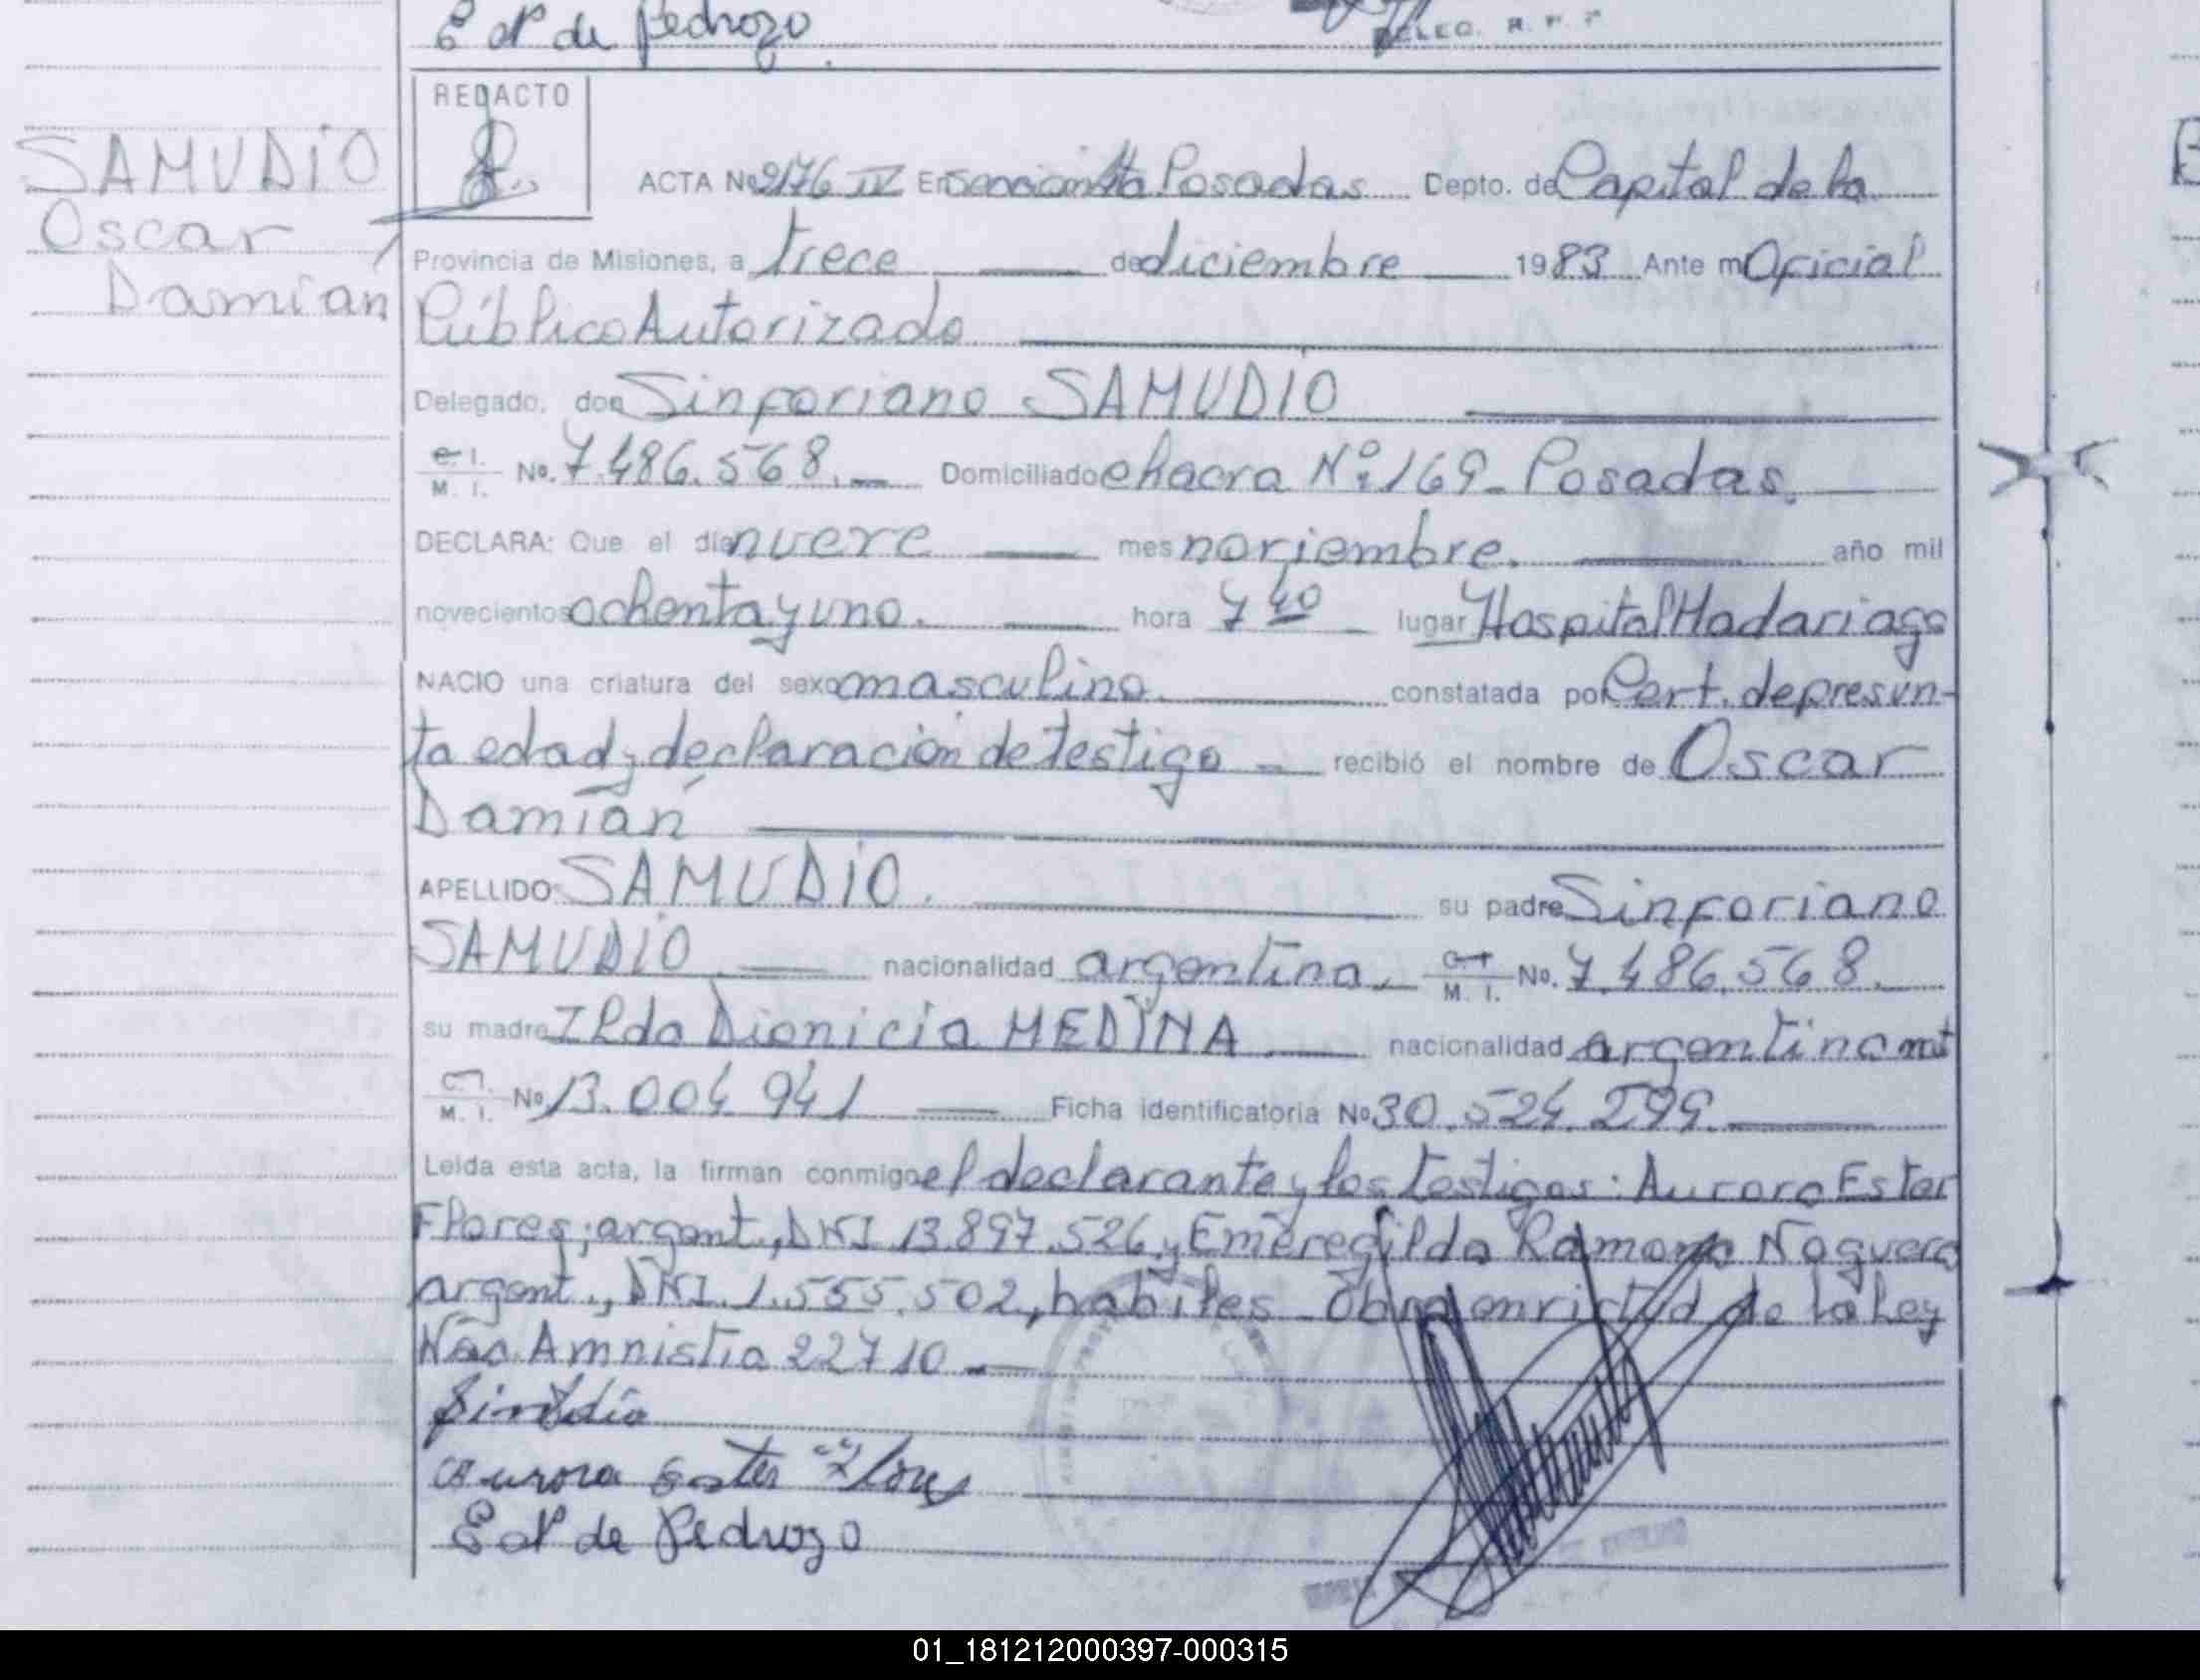 E N de Pedrozo
DELEG. R. P. P
REDACTO
SAMUDIO
Oscar
Damian
ACTA No 2176 IV En Sección 4ta Posadas Depto. de Capital de la
Provincia de Misiones, a trece de diciembre 1983 Ante mi Oficial
Público Autorizado
Delegado, don Sinforiano SAMUDIO
C. I. M. I. No. 7.486.568. Domiciliado chacra Nº 169 - Posadas.
DECLARA: Que el día nueve mes noviembre. año mil
novecientos ochenta y uno. hora 7 40 lugar Hospital Madariaga
NACIO una criatura del sexo masculino. constatada por Cert. de presun-
ta edad y declaración de testigo recibió el nombre de Oscar
Damián
APELLIDO SAMUDIO. su padre Sinforiano
SAMUDIO nacionalidad argentina. C. I. M. I. No. 7.486.568.
su madre Ilda Dionicia MEDINA nacionalidad argentina mat
C. I. M. I. No 13.004 941 Ficha identificatoria No 30.524.299.
Leida esta acta, la firman conmigo el declarante y los testigos: Aurora Ester
Flores; argent., DNI 13.897.526 y Emeregilda Ramona Noguera
argent., DNI. 1.555.502, habiles - Obra en virtud de la Ley
Nac. Amnistia 22710
Aurora Ester Flores
E N de Pedrozo
01_181212000397-000315